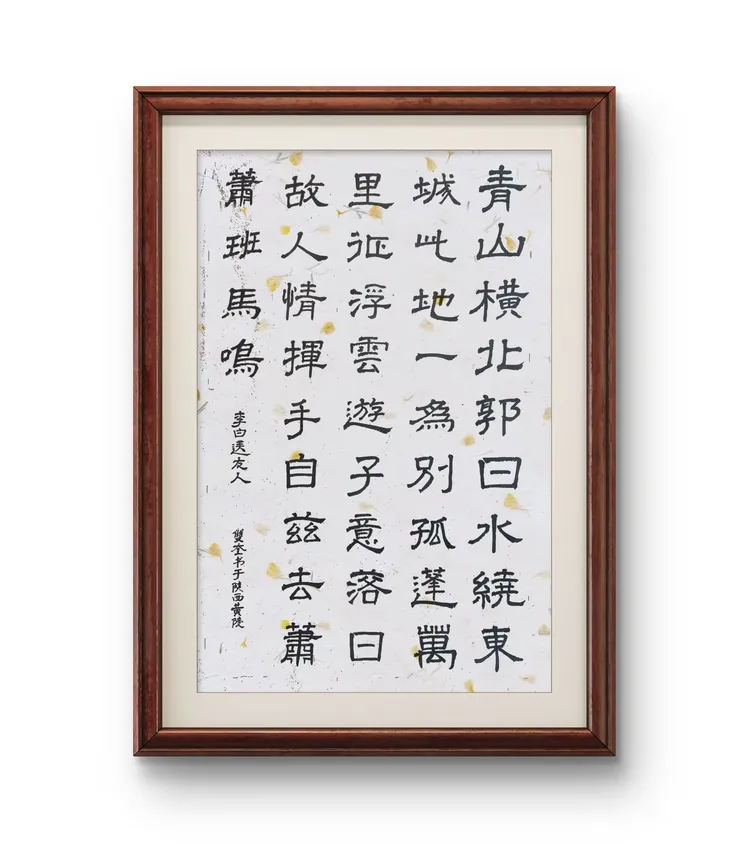 青山横北郭曰水繞東
城此地一為別孤蓬萬
里征浮雲遊子意落日
故人情揮手自茲去蕭
蕭班馬鳴
李白送友人
雙奎书于陝西黄陵